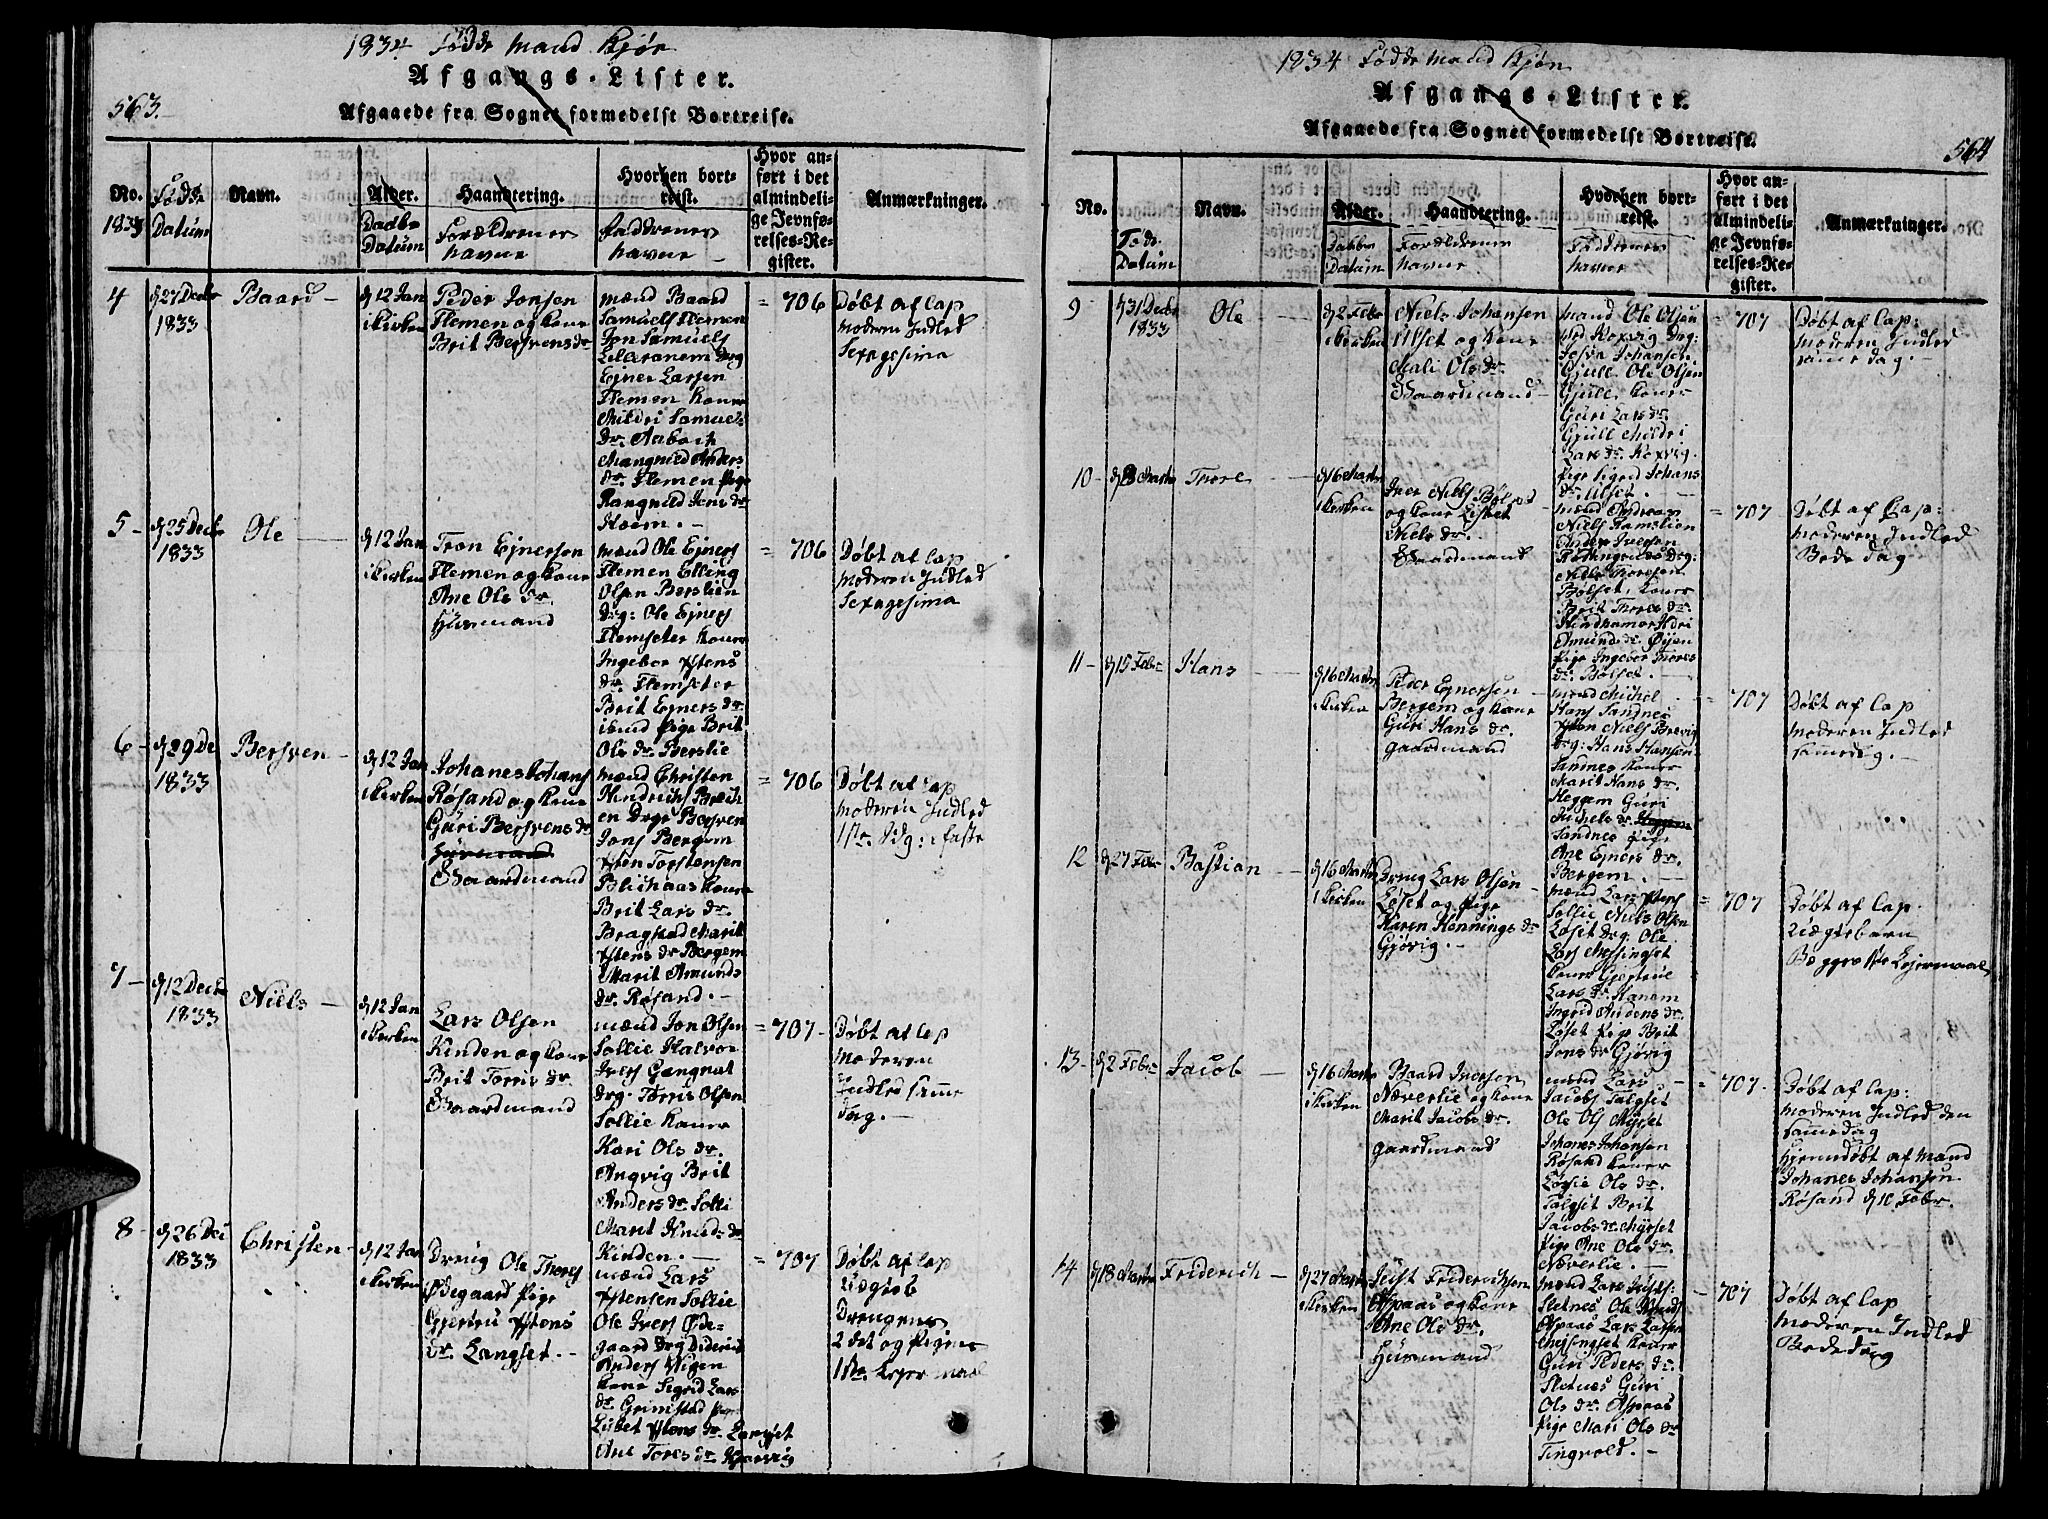 1834 Fødde Mand Kjøn
Afgangs-Lister.
563.
Afgaaede fra Sognet formedelst Bortreise.
No.
1833
Fødde
Datum
Navn.
Alder.
Daabs
Datum
Haandtering.
Forældrenes
Navne
Hvorhen bort-
reist.
Faddrenes
Navne
Hvor an-
ført i det
almindeli-
ge Jevnfø-
relses-Re-
gister.
Anmærkninger.
4
d 27 Decbr
1833
Baard
d 12 Jan
i Kirken
Peder Jonsen
Flemen og Kone
Brit Bersvens dr
mænd Baard
Samuels Flemen
Jon Samuels
Ejner Larsen
Flemen Koner
Mildri Samuels
dr. Aasbach
Magnild Anders
dr. Flemen Pige
Rangnild Jens dr
Hoem.
= 706
Døbt af Cap
Moderen Indled
Sexagesima
5
d 25 Decbr
1833
Ole
d 12 Jan
i Kirken
Tron Ejnersen
Flemen og Kone
Ane Ols dr.
Huusmand
mænd Ole Ejners
Flemen Elling
Olsen Berslien
Drg: Ole Ejners
Flemseter Koner
Ingebor Istens
dr. Flemseter
Brit Ejners dr
ibid Pige Brit
Ols dr. Berslie
= 706
Døbt af Cap
Moderen Indled
Sexagesima
6
d 29 De
1833
Bersven
d 12 Jan
i Kirken
Johanes Johans
Røsand og Kone
Guri Bersvens dr
Huusmand
Gaardmand
mænd Christen
Hindrichs Breich
en Drge Bersven
Jons Bergem
Isten Torstensen
Blichaas Koner
Brit Lars dr.
Bragstad Marit
Istens dr Bergem
Marit Amunds
dr. Røsand.
= 706
Døbt af Cap
Moderen Indled
1ste Sdg: i faste
7
d 12 Decbr
1833
Niels
d 12 Jan
i Kirken
Lars Olsen
Kinden og Kone
Brit Torris dr.
Gaardmand
mænd Jon Olsen
Sollie Halvor
Ivers Gangnat
drg. Torris Olsen
Sollie Koner
Kari Ols dr.
Angvig Brit
Anders dr Solli
Marit Knuds dr
Kinden.
= 707
Døbt af Cap
Moderen
Indled samme
dag.
8
d 26 Dec
1833
Christen
d 12 Jan
i Kirken
Dreng Ole Thores
Ødegaard Pige
Gjertru Istens
dr. Langset.
mænd Lars
Istensen Sollie
Ole Ivers Øde-
gaard Drg Diderik
Anders Stigen
Kone Sigrid Lars
dr. Grimstad Piger
Lisbet Istens dr. Langset
Ane Tores dr. Kjørvig
= 707
Døbt af Cap
Uægte
Drengens
2det og Pigens
1ste Lejermaal
1834 Fødde Mand Kjøn
Afgangs-Lister.
Afgaaede fra Sognet formedelst Bortreise.
564
No.
Føds.
Datum
Navn.
Alder.
Daabs
Datum
Haandtering.
Forældrenes
Navne.
Hvorhen bort-
reist.
Faddrenes
Navne
Hvor an-
ført i det
almindeli-
ge Jevnfø-
relses-Re-
gister.
Anmærkninger.
9
d 31 Decbr
1833
Ole
d 2 Febr
i Kirken
Niels Johansen
Ulset og Kone
Mali Ols dr.
Gaardmand
mænd Ole Olsen
Drg:
Johansen
Gjull Ole Olsen
Gjull. Koner
Guri Lars dr.
Gjull Mildri
Lars dr. Koxvig.
Pige Sigrid Johans
dr. Ulset.
= 707
Døbt af Cap:
Moderen Indled
samme dag.
10
Thore
d 16 Marts
i Kirken
Iver Niels Bølset
og Kone Lisbet
Niels dr.
Gaardmand
mænd Andreas
Niels Ramslien
Anders Iversen
Drg:
Niels Thoresen
Bølset, Koner
Brit Thores dr.
Hindhamer Ildri
Amunds dr. Øijen
Pige Ingebor Thores
dr. Bølset.
= 707
Døbt af Cap:
Moderen Indled
Bede dag
11
d 15 Febr
Hans
d 16 Marts
i Kirken
Peder Ejnersen
Bergem og Kone
Guri Hans dr.
Gaardmand
mænd Michel
Hans Sandnes
Isten Niels Brevig
drg: Hans Hansen
Sandnes Koner
Marit Hans dr.
Heggem Guri
Michels dr. Heggem
Sandnes Pige
Ane Ejners dr.
Bergem.
= 707
Døbt af Cap
Moderen Indled
samedag.
12
d 27 Febr
Bastian
d 16 Marts
i Kirken
Dreng Lars Olsen
Løset og Pige
Karen Hennings dr
Gjøvig.
mænd Lars Istens
Sollie Niels Olsen
Løset drg Ole
Lars Messingset
Koner Gjertrue
Lars dr. Hanem
Ingrid Audens dr.
Løset Pige Brit
Jons dr Gjøvig
= 707
Døbt af Cap.
Uægtebarn
Begges 1ste Lejermaal
13
d 2 Febr
Jacob
d 16 Marts
i Kirken
Baard Iversen
Næverlie og Kone
Marit Jacobs dr.
Gaardmand
mænd Lars
Jacobs Talgset
Ole Ols Myrset
Johanes Johansen
Røsand Koner
Ols dr.
Talgset Brit
Jacobs dr Myrset
Pige Ane Ols dr.
Næverlie.
= 707
Døbt af Cap:
Moderen Indled den
sammedag
Hjemmdøbt af Mand
Johanes Johansen
Røsand d 10 Febr.
14
d 18 Marts
Friderich
d 27 Marts
i Kirken
Siist Friderichsen
Aspaas og Kone
Ane Ols dr.
Huusmand
mænd Lars Siists:
Sletnes Ole Knuds
Aspaas Lars Larsen
Messingset Koner
Guri Peders dr.
Sletnes Guri
Ols dr. Aspaas
Pige Mari Ols dr
Tingvold.
= 707
Døbt af Cap
Moderen Indled
Bededag